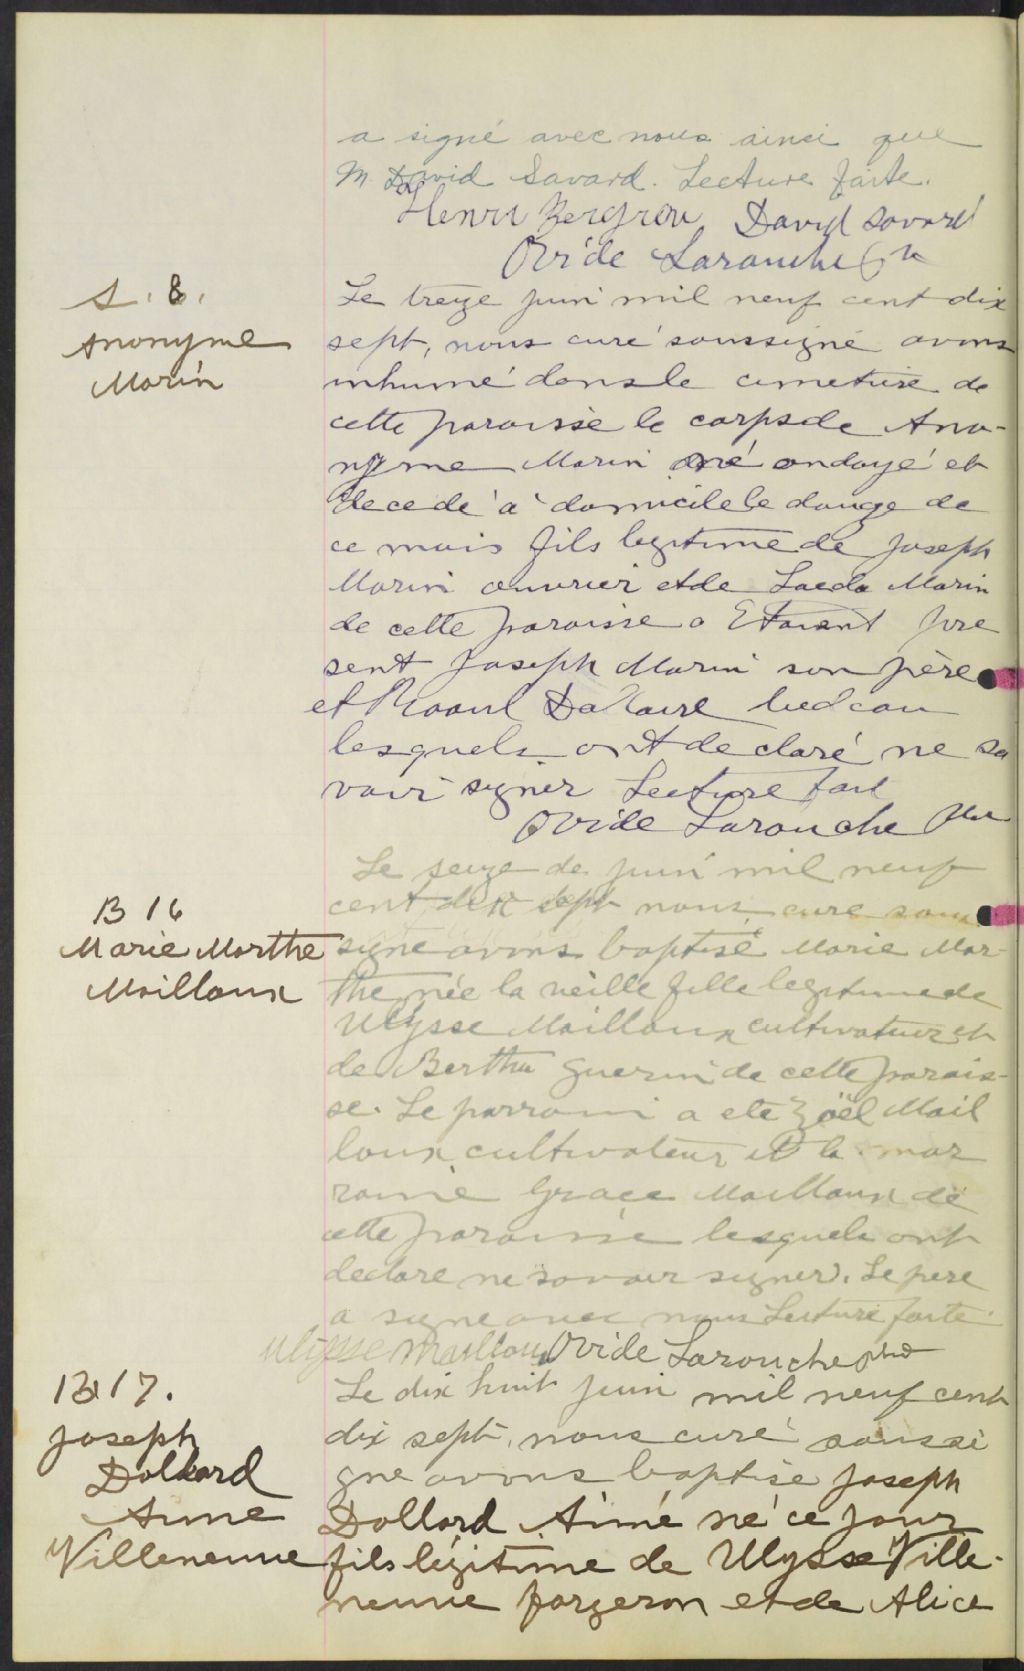 a signé avec nous ainsi que
M. David Savard. Lecture faite.
Henri Bergeron David Savard
Ovide Larouche
S. 8.
Anonyme
Morin
Le treize juin mil neuf cent dix
sept, nous curé soussigné avons
inhumé dans le cimetière de
cette paroisse le corps de Ano-
nyme Morin né ondoyé et
decedé à domicile le douze de
ce mois fils legitime de Joseph
Morin ouvrier et de Morin
de cette paroisse Etaient pre
sent Joseph Morin son père
et Raoul Dallaire bedeau
lesquels ont declaré ne sa
voir signer Lecture fait
Ovide Larouche ptre
B 16
Marie Marthe
Mailloux
Le seize de juin mil neuf
cent dix sept nous cure sous
signe avons baptisé Marie Mar-
the née la veille fille legitime de
Ulysse Mailloux cultivateur et
de Bertha Guerin de cette parois-
se. Le parrain a ete Zoël Mail
loux cultivateur et la mar
raine Grace Mailloux de
cette paroisse lesquels ont
declare ne savoir signer. Le pere
a signe avec nous Lecture faite.
Ulysse Mailloux Ovide Larouche ptre
B 17.
Joseph
Dollard
Aimé
Villeneuve
Le dix huit juin mil neuf cent
dix sept, nous curé soussi
gne avons baptise Joseph
Dollard Aimé né ce jour
fils légitime de Ulysse Ville-
neuve forgeron et de Alice